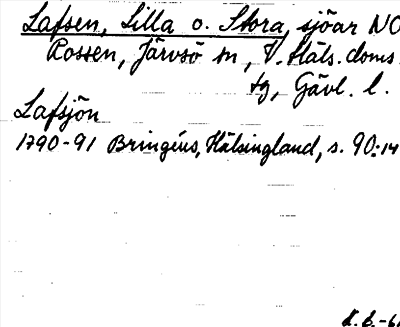 Lafsen, Lilla o. Stora, sjöar NO
Rossen, Järvsö sn, V. Häls. doms.
tg, Gävl. l.
Lafsjön
1790-91 Bringéus, Hälsingland, s. 90:14